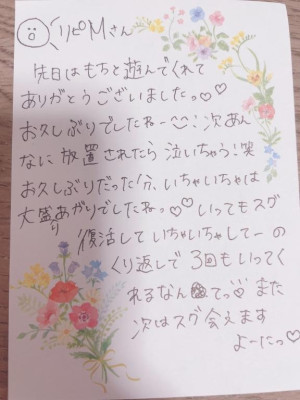 リピMさん
先日はもちと遊んでくれて
ありがとうございましたっ♡♡
お久しぶりでしたねー^^!次あん
なに放置されたら泣いちゃう!笑
お久しぶりだった分、いちゃいちゃは
大盛りあがりでしたねっ♡♡いってもスグ
復活していちゃいちゃしてーの
くり返しで3回もいってく
れるなんてっ また
次はスグ会えます
よーにっ♡